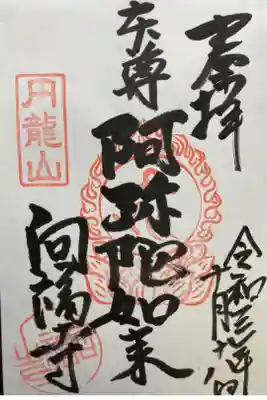 奉拝
本尊
阿弥陀如来
円龍山
向福寺
令和三年